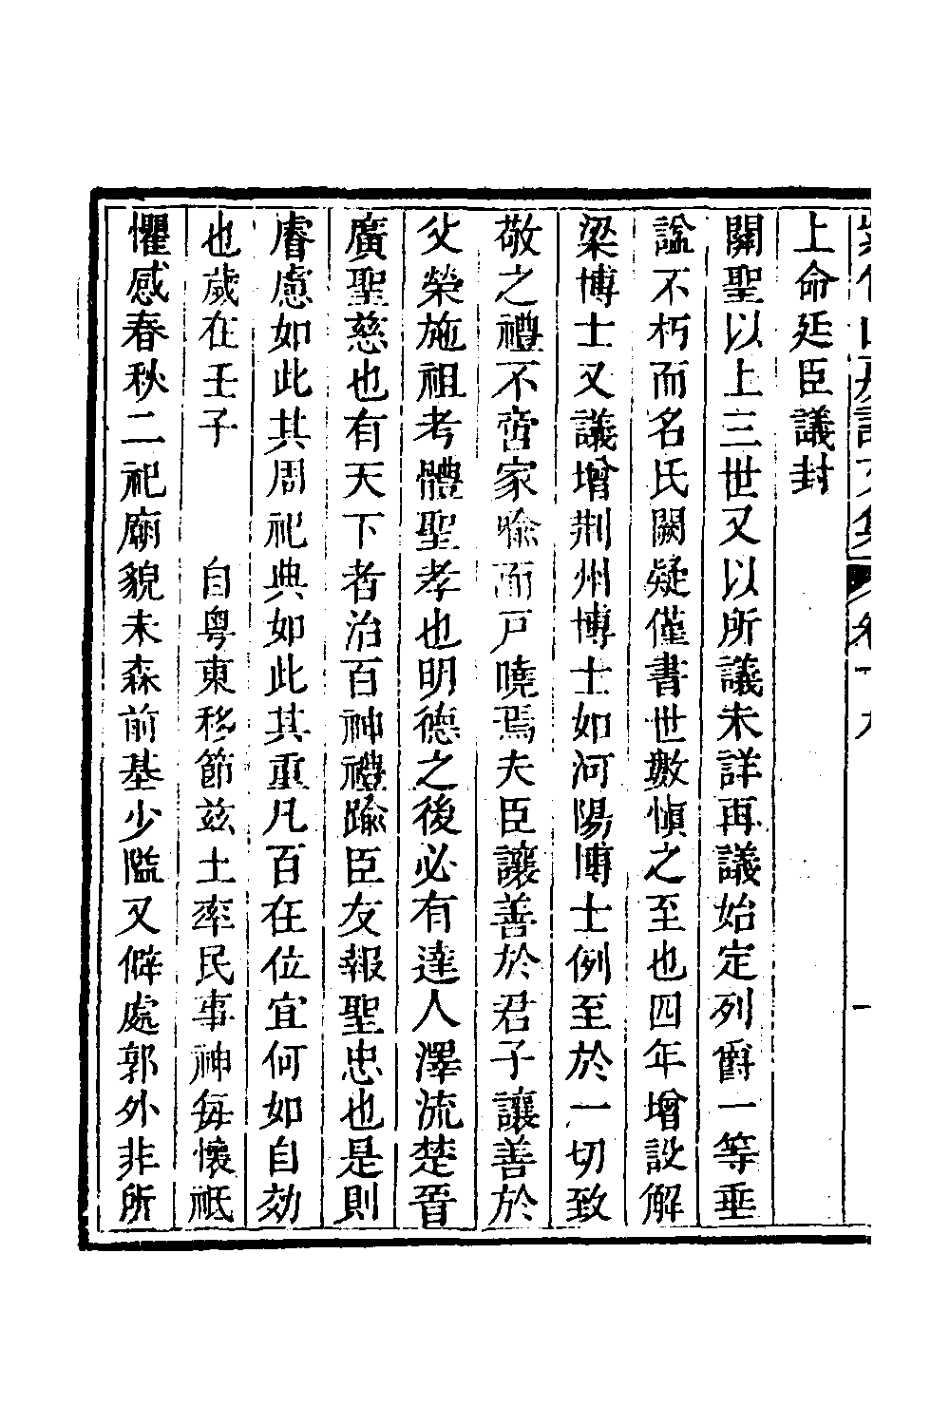 上命廷臣議封
關聖以上三世又以所議未詳再議始定列爵一等垂
諡不朽而名氏闕疑僅書世數慎之至也四年增設解
梁博士又議增荆州博士如河陽博士例至於一切致
敬之禮不啻家喻而戸曉焉夫臣讓善於君子讓善於
父榮施祖考體聖孝也明德之後必有達人澤流楚晉
廣聖慈也有天下者治百神禮踰臣友報聖忠也是則
睿慮如此其周祀典如此其重凡百在位宜何如自効
也歲在壬子　自粤東移節兹土率民事神每懷祗
懼感春秋二祀廟貌未森前基少隘又僻處郭外非所